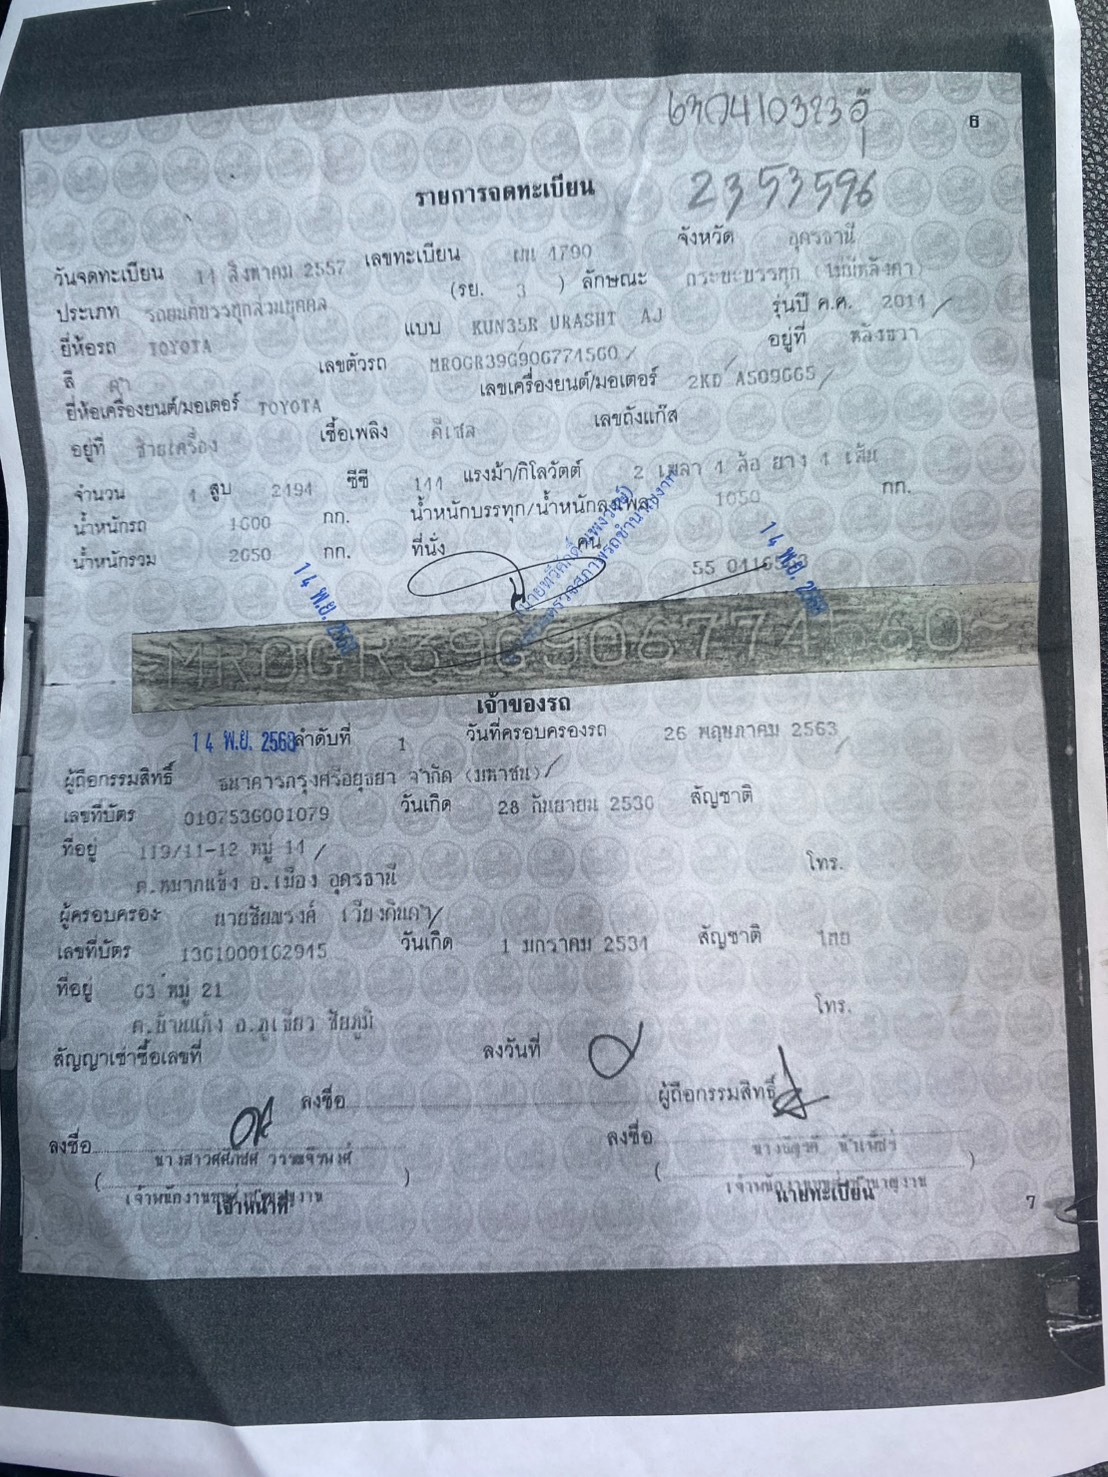 6
2353596
รายการจดทะเบียน
วันจดทะเบียน 14 สิงหาคม 2557 เลขทะเบียน ผน 4790 จังหวัด อุดรธานี
ประเภท รถยนต์บรรทุกส่วนบุคคล (รย. 3 ) ลักษณะ กระบะบรรทุก (ไม่มีหลังคา)
ยี่ห้อรถ TOYOTA แบบ KUN35R URASHT AJ รุ่นปี ค.ศ. 2011
สี ดำ เลขตัวรถ MROGR39G906774560 อยู่ที่ หลังขวา
ยี่ห้อเครื่องยนต์/มอเตอร์ TOYOTA เลขเครื่องยนต์/มอเตอร์ 2KD A509665
อยู่ที่ ซ้ายเครื่อง เชื้อเพลิง ดีเซล เลขถังแก๊ส
จำนวน 4 สูบ 2494 ซีซี 144 แรงม้า/กิโลวัตต์ 2 เพลา 4 ล้อ ยาง 4 เส้น
น้ำหนักรถ 1600 กก. น้ำหนักบรรทุก/น้ำหนักลงเพลา 1050 กก.
น้ำหนักรวม 2650 กก. ที่นั่ง คน
14 พ.ย. 2563 14 พ.ย. 2563
MROGR39G906774560
เจ้าของรถ
14 พ.ย. 2563 ลำดับที่ 1 วันที่ครอบครองรถ 26 พฤษภาคม 2563
ผู้ถือกรรมสิทธิ์ ธนาคารกรุงศรีอยุธยา จำกัด (มหาชน)
เลขที่บัตร 0107536001079 วันเกิด 28 กันยายน 2536 สัญชาติ
ที่อยู่ 119/11-12 หมู่ 14
ต.หมากแข้ง อ.เมือง อุดรธานี โทร.
ผู้ครอบครอง นายชัยณรงค์
เลขที่บัตร 1361000162945 วันเกิด 1 มกราคม 2534 สัญชาติ ไทย
ที่อยู่ 63 หมู่ 21
ต.บ้านแก้ง อ.ภูเขียว ชัยภูมิ โทร.
สัญญาเช่าซื้อเลขที่ ลงวันที่
ลงชื่อ ผู้ถือกรรมสิทธิ์
ลงชื่อ ลงชื่อ
เจ้าหน้าที่ นายทะเบียน
7